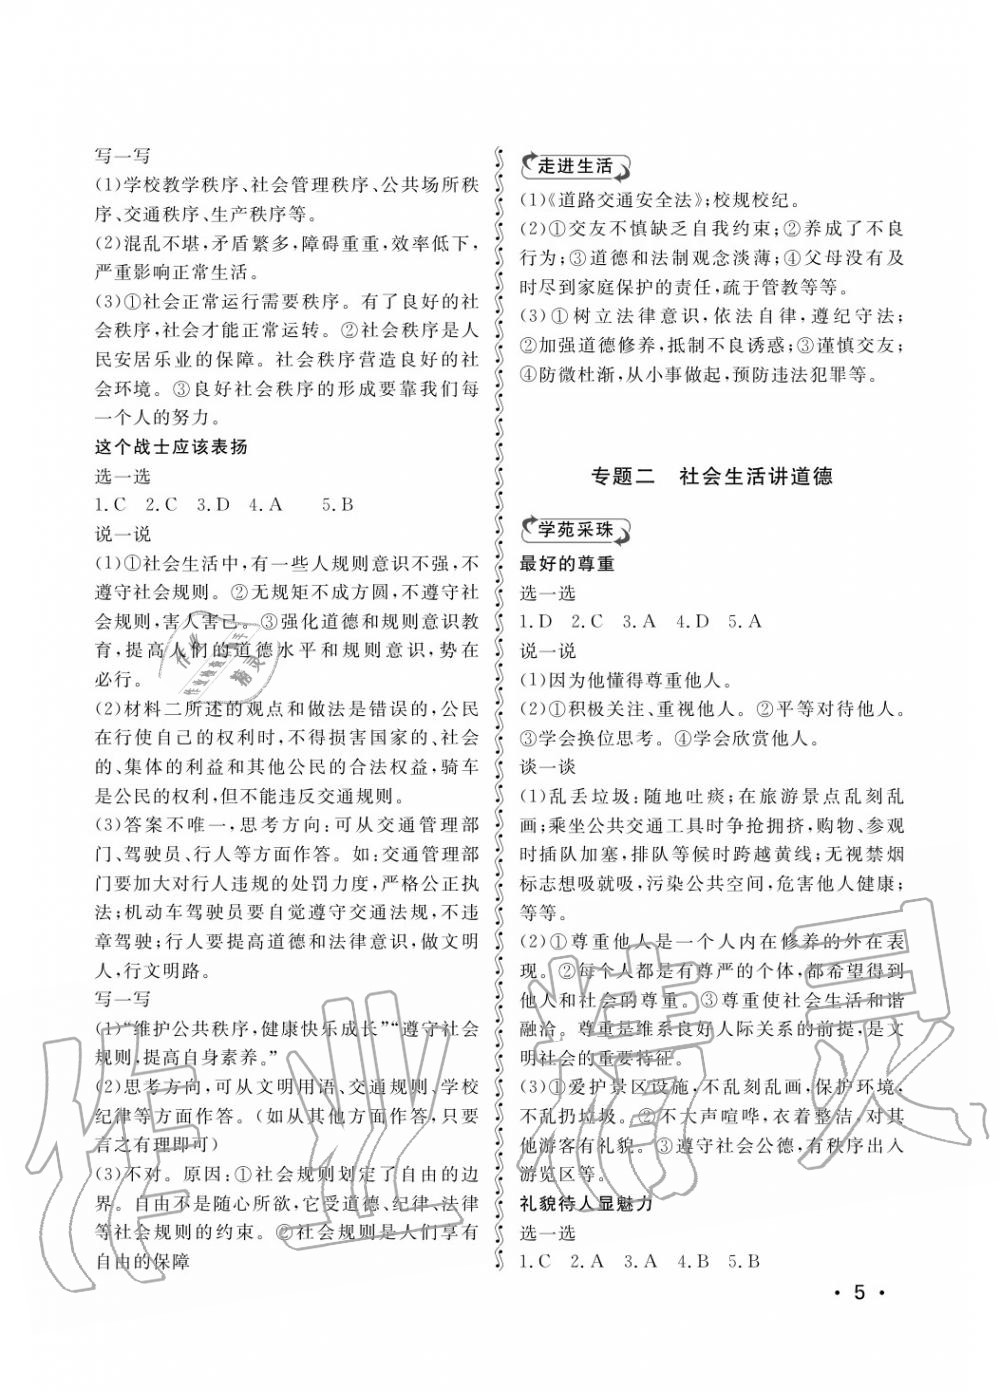 写一写
(1)学校教学秩序、社会管理秩序、公共场所秩
序、交通秩序、生产秩序等。
(2)混乱不堪,矛盾繁多,障碍重重,效率低下,
严重影响正常生活。
(3)①社会正常运行需要秩序。有了良好的社
会秩序,社会才能正常运转。②社会秩序是人
民安居乐业的保障。社会秩序营造良好的社
会环境。③良好社会秩序的形成要靠我们每
一个人的努力。
这个战士应该表扬
选一选
1.C 2.C 3.D 4.A 5.B
说一说
(1)①社会生活中,有一些人规则意识不强,不
遵守社会规则。②无规矩不成方圆,不遵守社
会规则,害人害己。③强化道德和规则意识教
育,提高人们的道德水平和规则意识,势在
必行。
(2)材料二所述的观点和做法是错误的,公民
在行使自己的权利时,不得损害国家的、社会
的、集体的利益和其他公民的合法权益,骑车
是公民的权利,但不能违反交通规则。
(3)答案不唯一,思考方向:可从交通管理部
门、驾驶员、行人等方面作答。如:交通管理部
门要加大对行人违规的处罚力度,严格公正执
法;机动车驾驶员要自觉遵守交通法规,不违
章驾驶;行人要提高道德和法律意识,做文明
人,行文明路。
写一写
(1)“维护公共秩序,健康快乐成长”“遵守社会
规则,提高自身素养。”
(2)思考方向,可从文明用语、交通规则、学校
纪律等方面作答。(如从其他方面作答,只要
言之有理即可)
(3)不对。原因:①社会规则划定了自由的边
界。自由不是随心所欲,它受道德、纪律、法律
等社会规则的约束。②社会规则是人们享有
自由的保障
走进生活
(1)《道路交通安全法》;校规校纪。
(2)①交友不慎缺乏自我约束;②养成了不良
行为;③道德和法制观念淡薄;④父母没有及
时尽到家庭保护的责任,疏于管教等等。
(3)①树立法律意识,依法自律,遵纪守法;
②加强道德修养,抵制不良诱惑;③谨慎交友;
④防微杜渐,从小事做起,预防违法犯罪等。
专题二 社会生活讲道德
学苑采珠
最好的尊重
选一选
1.D 2.C 3.A 4.D 5.A
说一说
(1)因为他懂得尊重他人。
(2)①积极关注、重视他人。②平等对待他人。
③学会换位思考。④学会欣赏他人。
谈一谈
(1)乱丢垃圾:随地吐痰;在旅游景点乱刻乱
画;乘坐公共交通工具时争抢拥挤,购物、参观
时插队加塞,排队等候时跨越黄线;无视禁烟
标志想吸就吸,污染公共空间,危害他人健康;
等等。
(2)①尊重他人是一个人内在修养的外在表
现。②每个人都是有尊严的个体,都希望得到
他人和社会的尊重。③尊重使社会生活和谐
融洽。尊重是维系良好人际关系的前提,是文
明社会的重要特征。
(3)①爱护景区设施,不乱刻乱画,保护环境,
不乱扔垃圾。②不大声喧哗,衣着整洁,对其
他游客有礼貌。③遵守社会公德,有秩序出入
游览区等。
礼貌待人显魅力
选一选
1.C 2.A 3.A 4.B 5.B
• 5 •
作业精灵